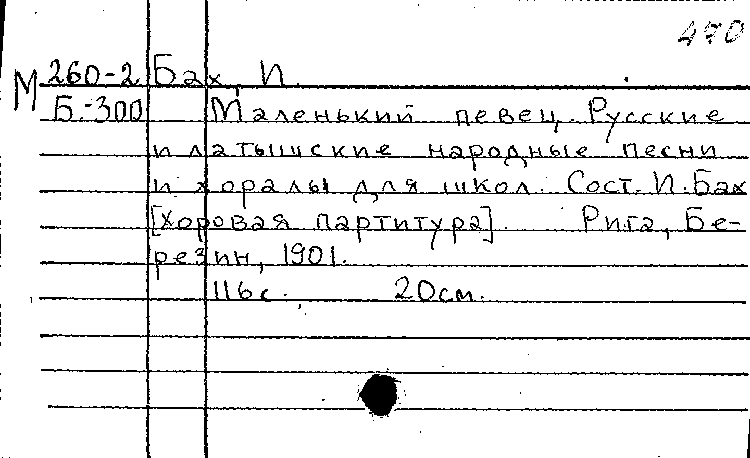 470
М 260-2 Бах, И.
Б.-300 Маленький певец. Русские
и латышские народные песни
и хоралы для школ. Сост. И. Бах
[хоровая партитура]. Рига, Бе-
резин, 1901.
116с. 20см.